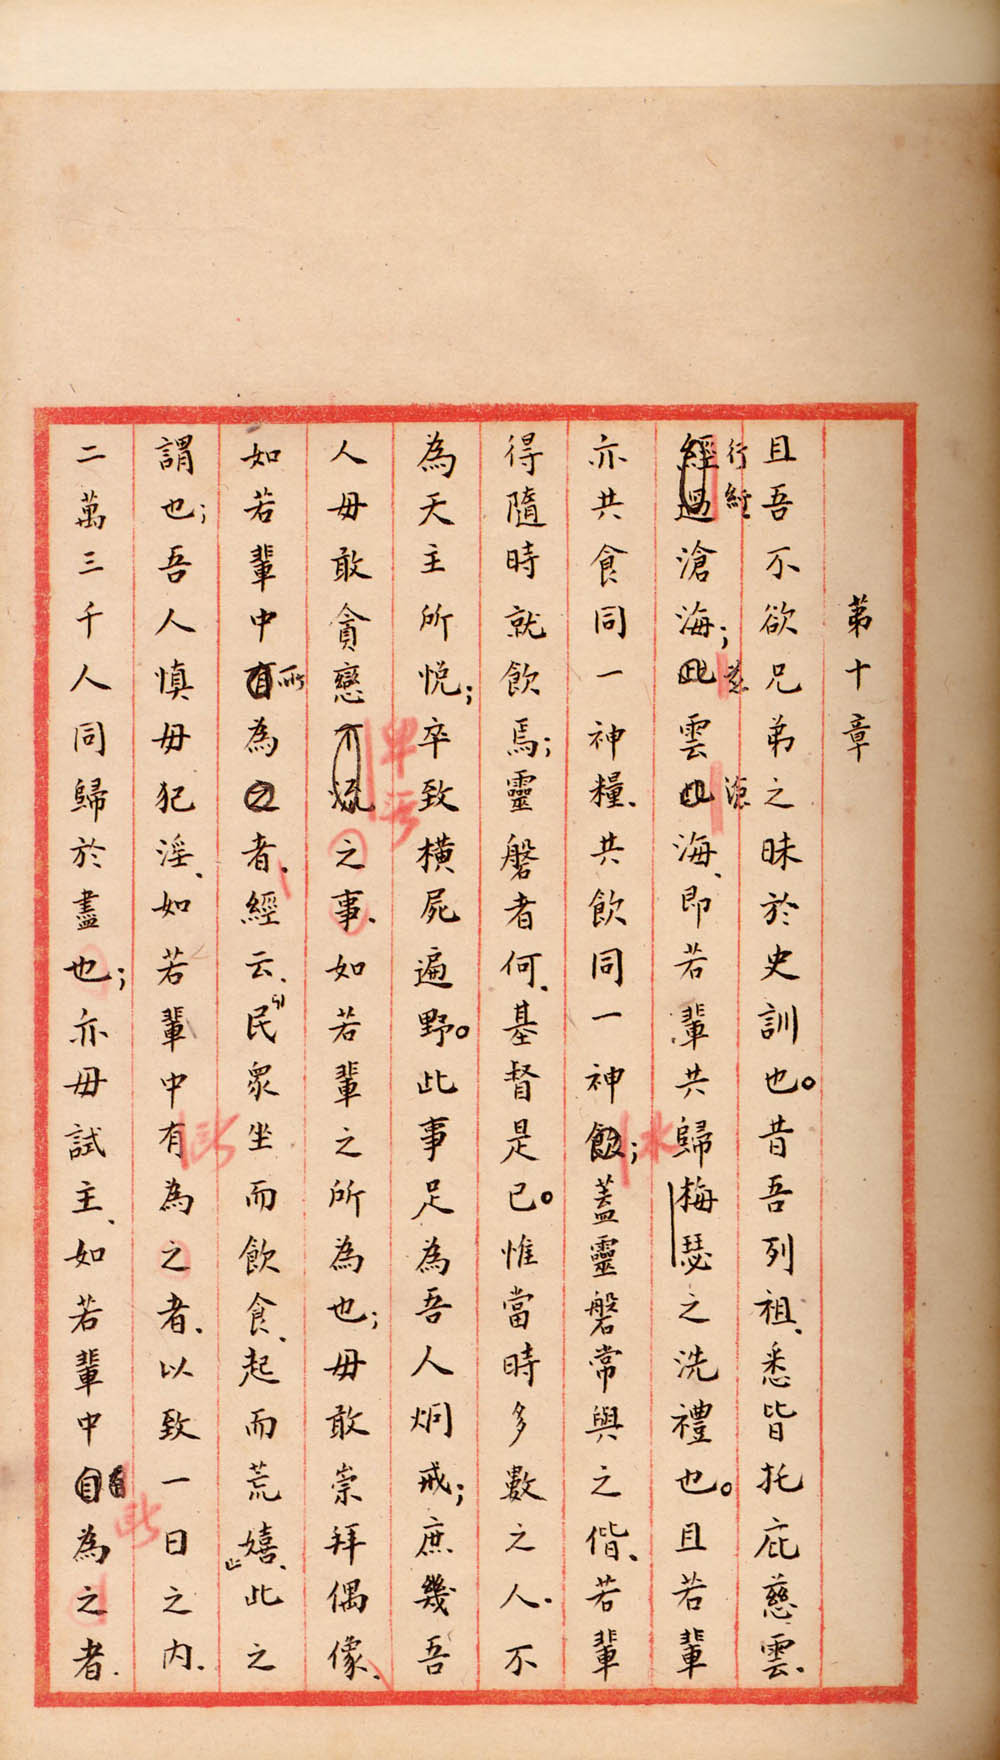 第十章
且吾不欲兄弟之昧於史訓也。昔吾列祖、悉皆托庇慈雲、
行經
經過滄海；此雲此海、即若輩共歸梅瑟之洗禮也。且若輩
亦共食同一神糧、共飲同一神飲；蓋靈磐常與之偕、若輩
水
得隨時就飲焉；靈磐者何、基督是已。惟當時多數之人、不
為天主所悅；卒致橫屍遍野。此事足為吾人炯戒；庶幾吾
人毋敢貪戀不 之事、如若輩之所為也；毋敢崇拜偶像、
如若輩中有所為之者、經云、民眾坐而飲食、起而荒嬉、此之
謂也；吾人慎毋犯淫、如若輩中有為之者、以致一日之內、
二萬三千人同歸於盡也；亦毋試主、如若輩中自有為之者、